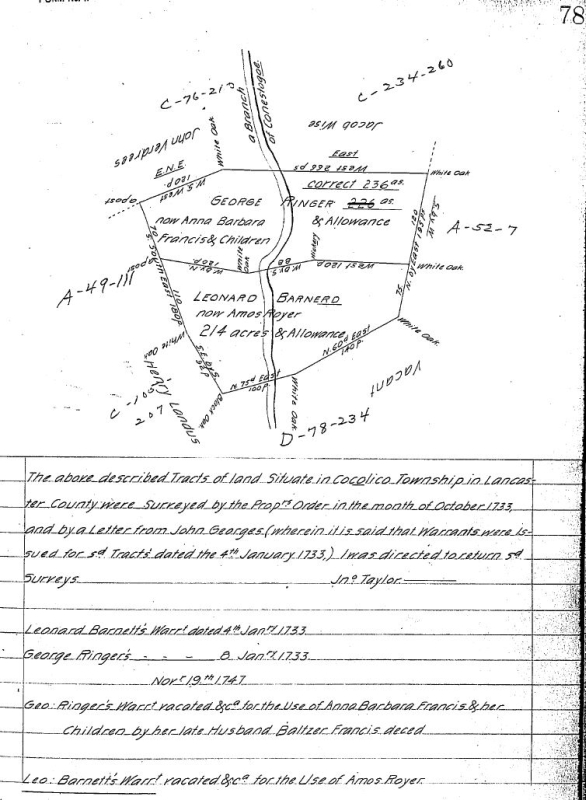 78
C-76-21
a Branch
of Conestogoe
C-234-260
Jacob Wise
John Verdrees
White Oak
E.N.E.
120 P.
W S West
East
West 266 ps
White Oak
correct 236 as.
GEORGE RINGER 226 as.
& Allowance
now Anna Barbara
Francis & Children
apost
S. by W.
120
N. by East 195 ps
A-52-7
A-49-111
apost
W by N
120 P
White Oak
W by S
88
West 120 P.
White Oak
South East 180 p.
110
LEONARD BARNERD
now Amos Royer
214 acres & Allowance
75
White Oak
N. 60d East
140 P.
White Oak
S. by E.
Black Oak
N. 75d East
100 P.
White Oak
Henry Landus
C-105
207
Vacant
D-78-234
The above described Tracts of land Situate in Cocolico Township in Lancas-
ter County were Surveyed by the Proprs Order in the month of October 1733
and by a Letter from John Georges (wherein it is said that Warrants were Is-
sued for sd Tracts dated the 4th January 1733,) I was directed to return sd
Surveys Jno Taylor
Leonard Barnett's Warrt dated 4th Jany 1733
George Ringer's - - - 8 Jany 1733
Novr 19th 1747
Geo: Ringer's Warrt vacated &ca for the Use of Anna Barbara Francis & her
Children by her late Husband Baltzer Francis deced
Leo: Barnett's Warrt vacated &ca for the Use of Amos Royer